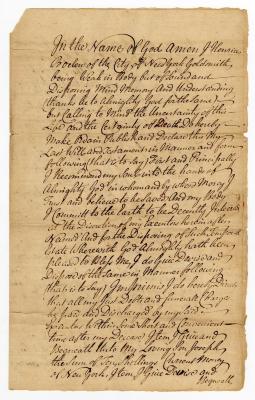 In the Name of God Amen I Henricus
Boelen of the City of New York Goldsmith,
being Weak in Body but of Sound and
Disposing Mind Memory And Understanding
thanks be to Almighty God for the same
but Calling to Mind the Uncertainty of this
Life and the Certainty of Death Do hereby
Make Ordain Publish and Declare this My
Last Will and Testament in Manner and form
following (that is to say) First and Principally
I Recommend my Soul into the hands of
Almighty God in whom and by whose Mercy I
Trust and believe to be Saved And my Body
I Commit to the Earth to be Decently Interred
at the Discretion of my Executors hereinafter
Named And for the Disposing of such Temporal
Estate wherewith God Almighty hath been
pleased to Bless Me, I do Give Devise and
Dispose of the same in Manner following
that is to say; Imprimis I do hereby Direct
that all my Just Debts and funeral Charges
be paid and Discharged by my said
Executors within some Short and Convenient
time after my Decease Item I Give and
Bequeath Unto My Loving Son Joseph
the Sum of Ten Shillings Current Money
of New York, Item I Give Devise and
Bequeath